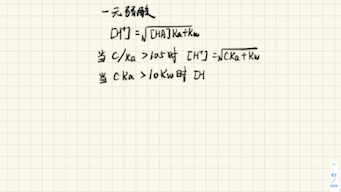 一元弱酸
[H⁺]=√[HA]Ka+Kw
当 C/Ka > 105时 [H⁺]=√CKa+Kw
当 CKa > 10Kw时 [H